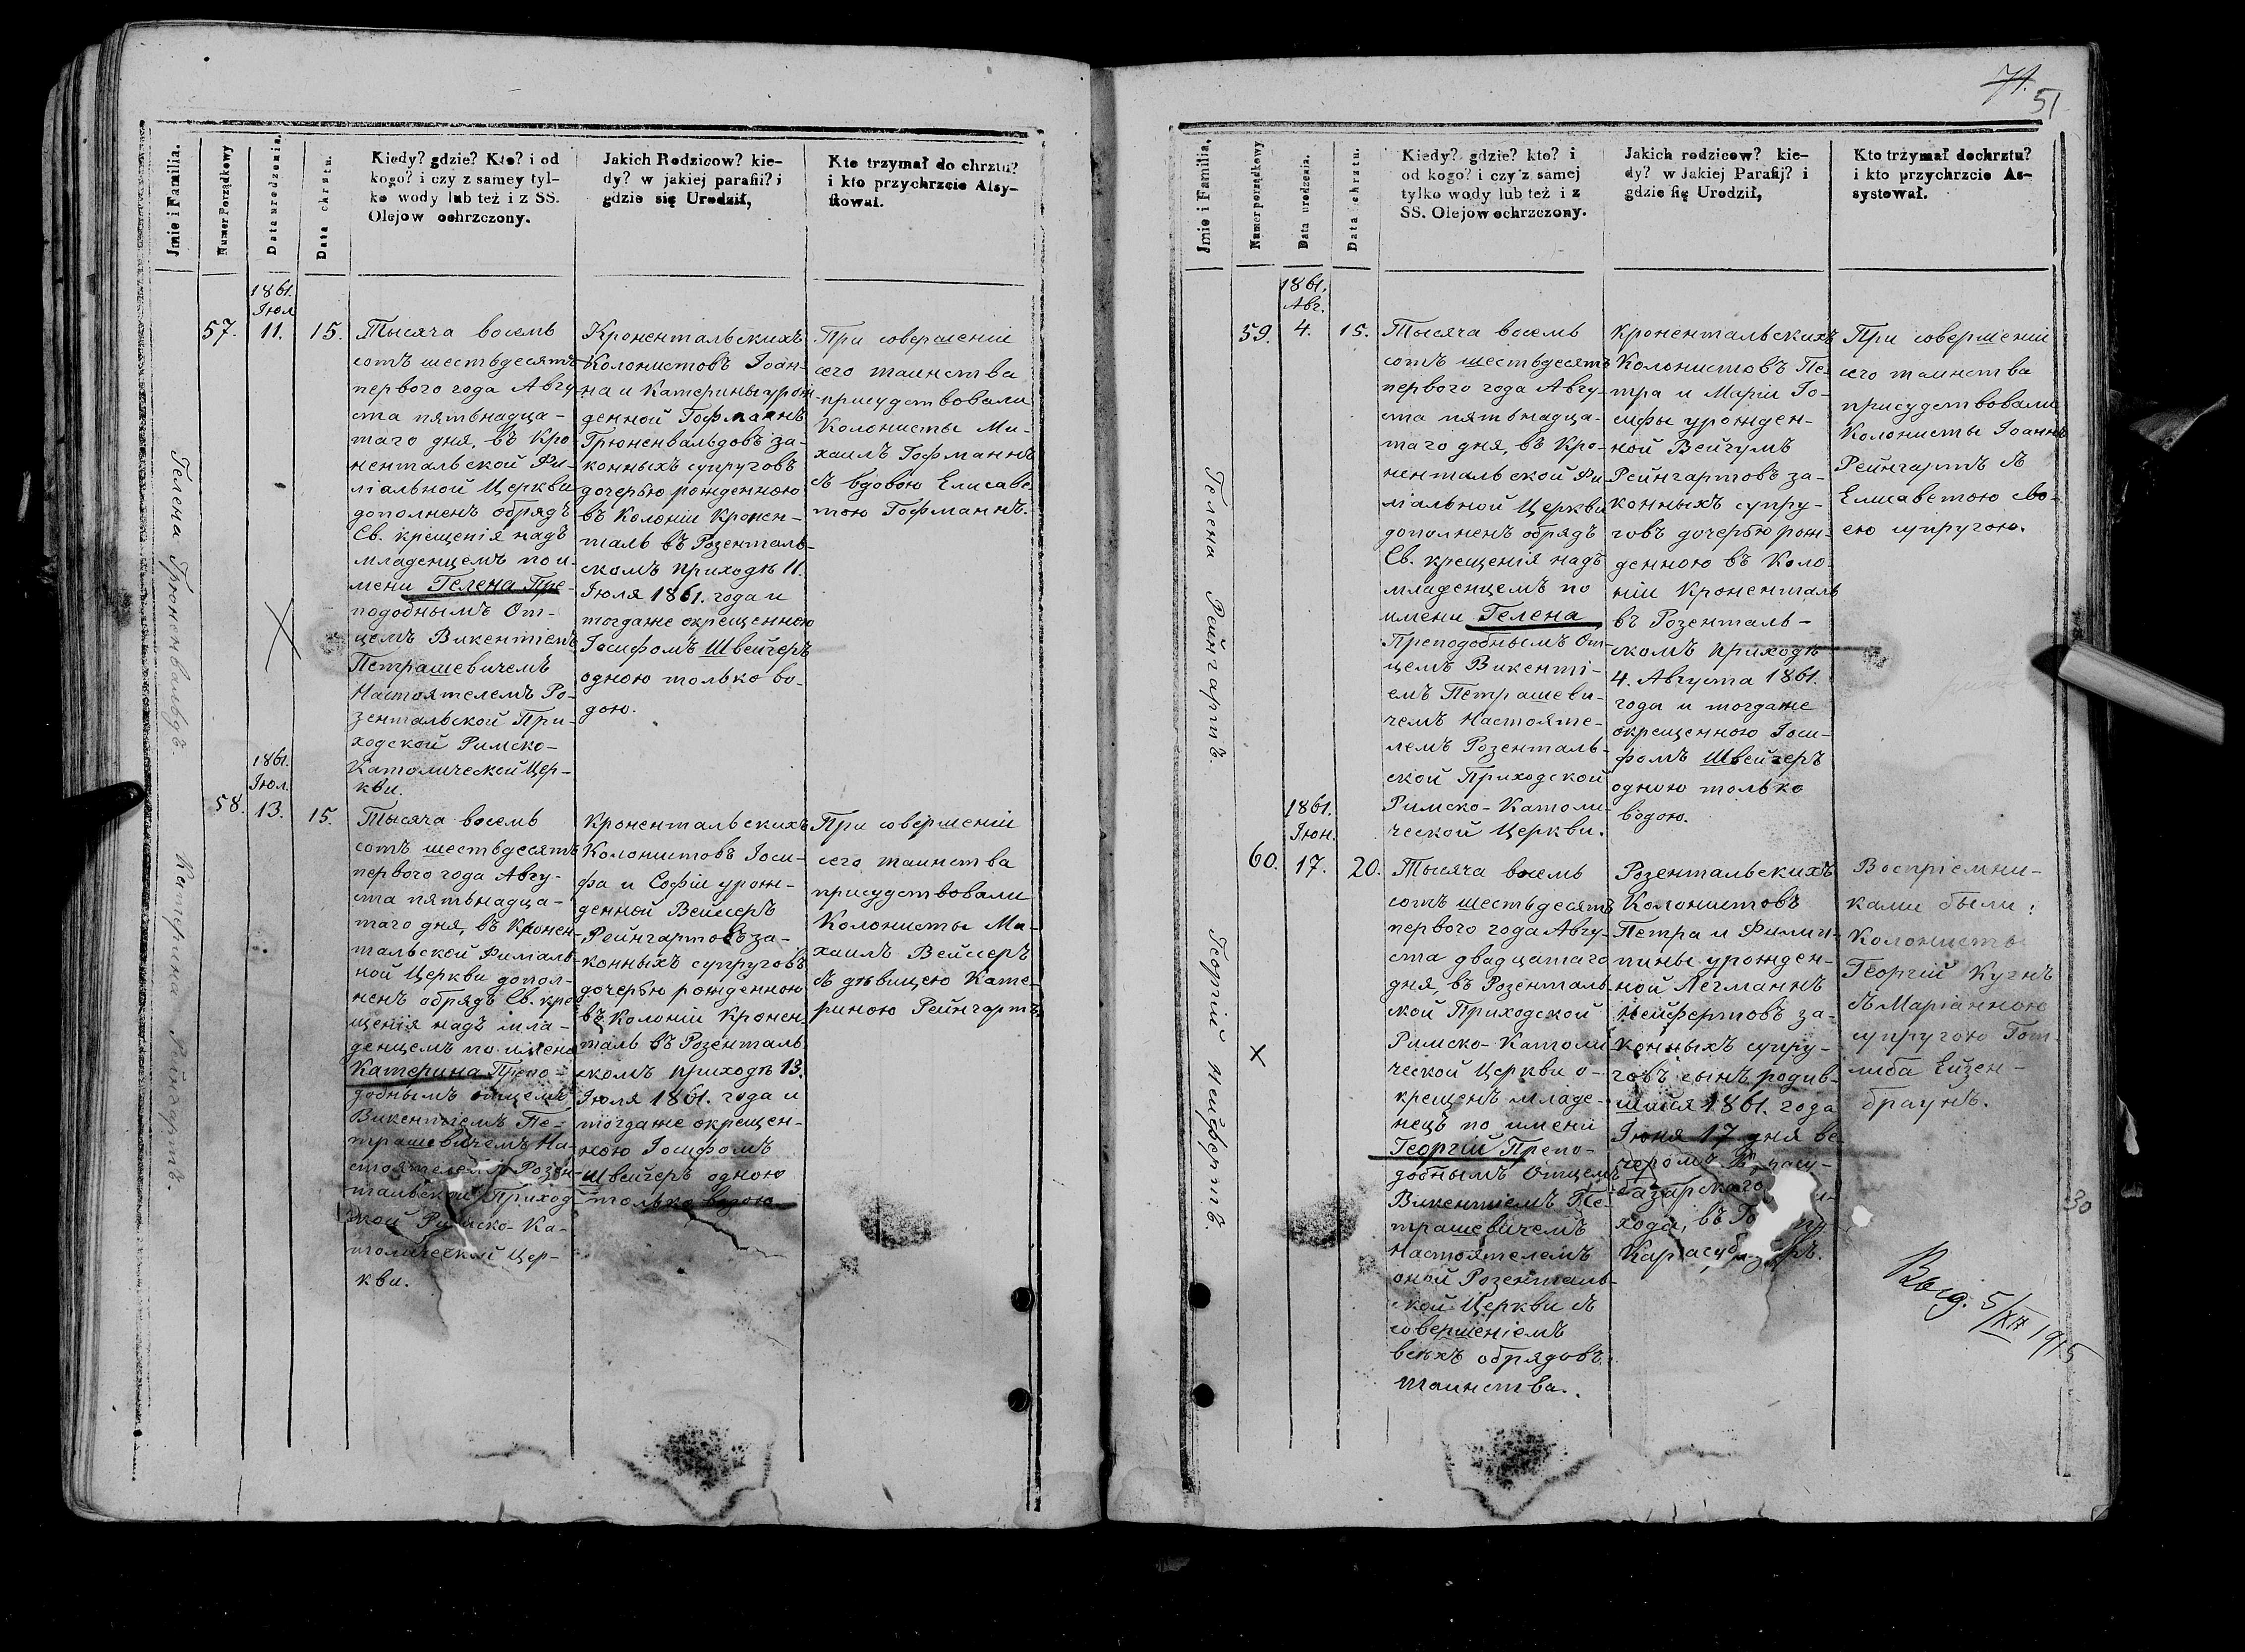 Jmie i Familia.
Numer Porządkowy
Data urodzenia.
Data chrztu.
Kiedy? gdzie? Kto? i od
kogo? i czy z samey tyl-
ko wody lub też i z SS.
Olejow ochrzczony.
Jakich Rodzicow? kie-
dy? w jakiej parafii? i
gdzie się Urodził,
Kto trzymał do chrztu?
i kto przychrzcie Assy-
stował.
Гелена Грюненвальдъ.
57.
1861.
Іюл.
11.
15.
Тысяча восемь
сотъ шестьдесятъ
первого года Авгу-
ста пятьнадца-
таго дня, въ Кро
нентальской Фи-
ліальной Церкви
дополненъ обрядъ
Св. крещенія надъ
младенцемъ по и-
мени Гелена Пре-
подобнымъ От-
цемъ Викентіемъ
Петрашевичемъ
Настоятелемъ Ро-
зентальской При-
ходской Римско-
Католической Цер-
кви.
Кронентальскихъ
Колонистовъ Іоан-
на и Катерины урож
денной Гофманнъ
Грюненвальдовъ за-
конныхъ супруговъ
дочерью рожденною
въ Колоніи Кронен-
таль въ Розенталь-
скомъ приходѣ 11.
Іюля 1861. года и
тогдаже окрещенною
Іосифомъ Швейгеръ
одною только во-
дою.
При совершеніи
сего таинства
присудствовали
Колонисты Ми-
хаилъ Гофманнъ
съ вдовою Елисаве
тою Гофманнъ.
Катерина Рейнгартъ.
58.
1861.
Іюл.
13.
15.
Тысяча восемь
сотъ шестьдесятъ
первого года Авгу-
ста пятьнадца-
таго дня, въ Кронен-
тальской Филіаль-
ной Церкви допол-
ненъ обрядъ Св. кре
щенія надъ мла-
денцемъ по имени
Катерина Препо-
добнымъ отцемъ
Викентіемъ Пе-
трашевичемъ На-
стоятелемъ Розен-
тальской Приход
ской Римско-Ка-
толической Цер-
кви.
Кронентальскихъ
Колонистовъ Іоси-
фа и Софіи урож-
денной Вейссеръ
Рейнгартовъ за-
конныхъ супруговъ
дочерью рожденною
въ Колоніи Кронен-
таль въ Розенталь
скомъ приходѣ 13.
Іюля 1861. года и
тогдаже окрещен-
ною Іосифомъ
Швейгеръ одною
только водою.
При совершеніи
сего таинства
присудствовали
Колонисты Ми-
хаилъ Вейссеръ
съ дѣвицею Кате-
риною Рейнгартъ.
71.
51
Jmie i Familia.
Numer porządkowy.
Data urodzenia.
Data chrztu.
Kiedy? gdzie? kto? i
od kogo? i czy z samej
tylko wody lub też i z
SS. Olejow ochrzczony.
Jakich rodzicow? kie-
dy? w Jakiej Parafij? i
gdzie się Urodził,
Kto trzymał dochrztu?
i kto przychrzcie As-
systował.
Гелена Рейнгартъ.
59.
1861.
Авг.
4.
15.
Тысяча восемь
сотъ шестьдесятъ
первого года Авгу-
ста пятьнадца-
таго дня, въ Кро-
нентальской Фи
ліальной Церкви
дополненъ обрядъ
Св. крещенія надъ
младенцемъ по
имени Гелена
Преподобнымъ От-
цемъ Викенті-
емъ Петрашеви-
чемъ Настояте-
лемъ Розенталь-
ской Приходской
Римско-Католи-
ческой Церкви.
Кронентальскихъ
Колонистовъ Пе-
тра и Маріи Іо-
сифы урожден-
ной Вейгумъ
Рейнгартовъ за-
конныхъ супру-
говъ дочерью рож-
денною въ Коло-
ніи Кроненталь
въ Розенталь-
скомъ приходѣ
4. Августа 1861.
года и тогдаже
окрещенною Іоси-
фомъ Швейгеръ
одною только
водою.
При совершеніи
сего таинства
присудствовали
Колонисты Іоаннъ
Рейнгартъ съ
Елисаветою сво-
ею супругою.
Георгій Нейфертъ.
60.
1861.
Іюн.
17.
20.
Тысяча восемь
сотъ шестьдесятъ
первого года Авгу-
ста двадцатаго
дня, въ Розенталь
ской Приходской
Римско-Католи
ческой Церкви о-
крещенъ младе-
нецъ по имени
Георгій Препо-
добнымъ Отцемъ
Викентіемъ Пе-
трашевичемъ
Настоятелемъ
оной Розенталь-
ской Церкви съ
совершеніемъ
всѣхъ обрядовъ
таинства.
Розентальскихъ
Колонистовъ
Петра и Филип-
пины урожден-
ной Легманнъ
Нейфертовъ за-
конныхъ супру-
говъ сынъ родив-
шійся 1861. года
Іюня 17 дня ве
черомъ
базарскаго
хода, въ
Воспріемни-
ками были:
Колонисты
Георгій Кугнъ
съ Маріанною
супругою Гот-
либа Ейзен-
браунъ.
Выд. 5/XII 1915
30